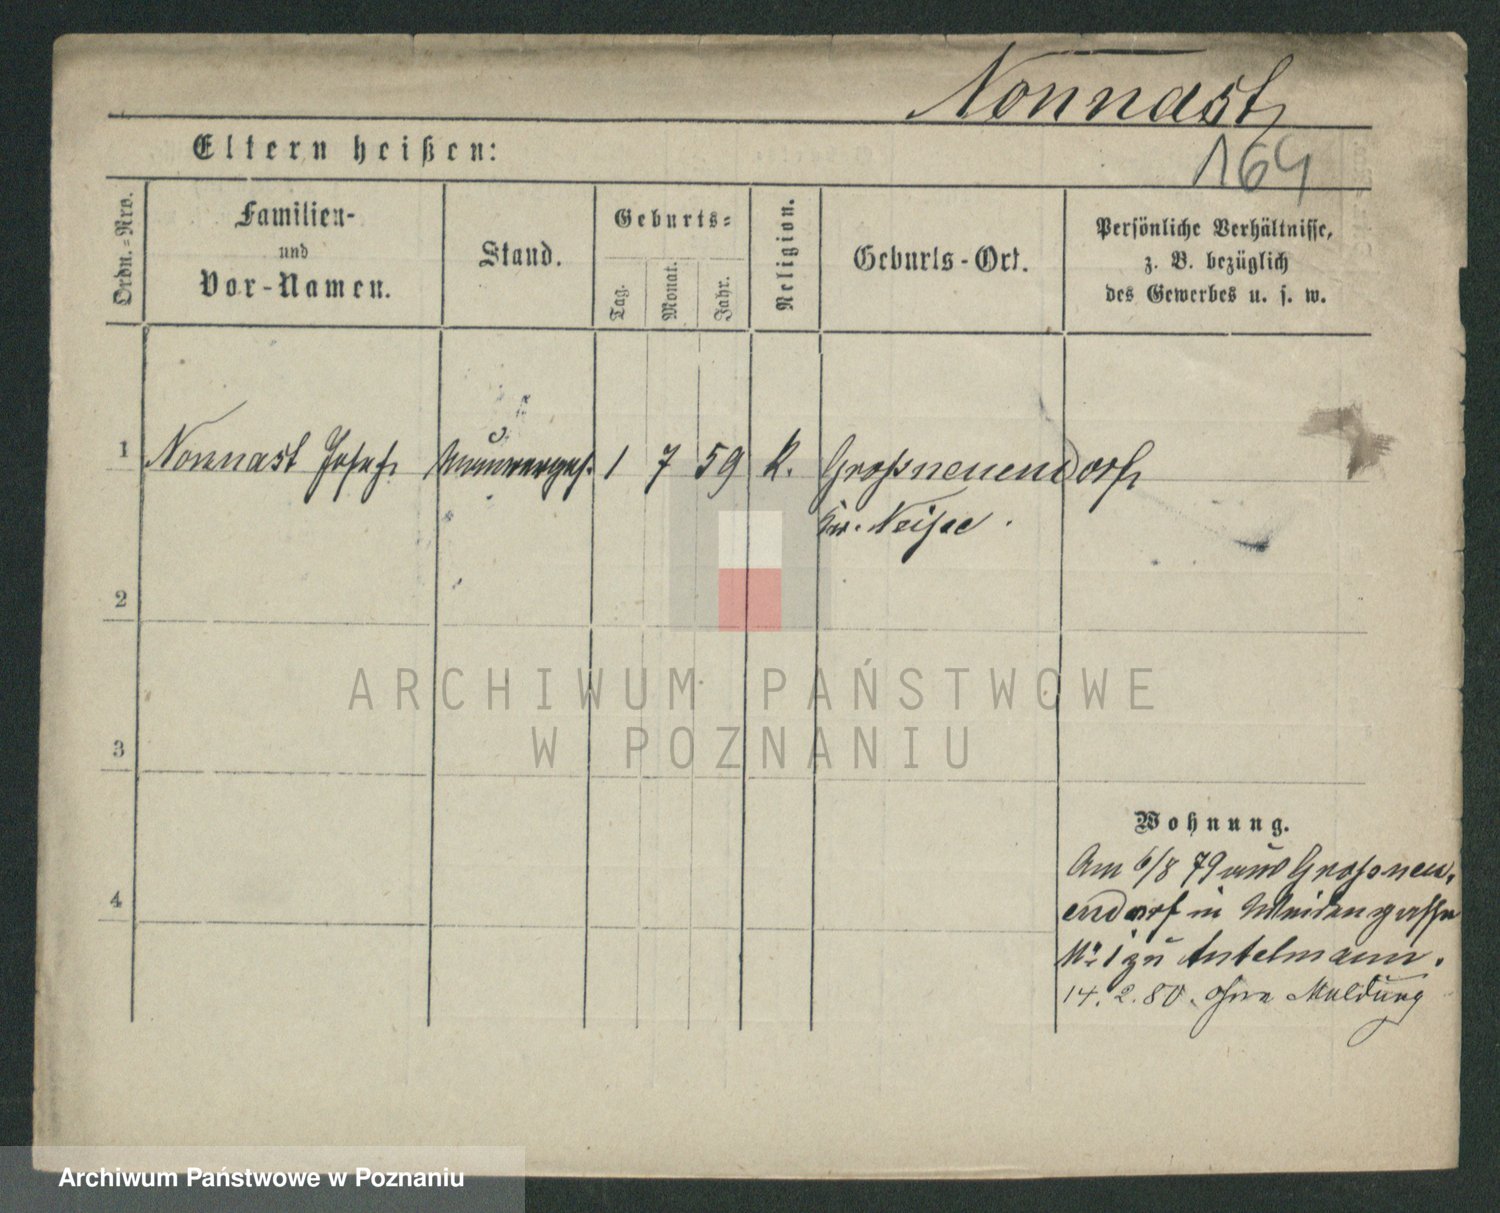 Nonnast
164
Eltern heißen:
Ordn.=Nro.
Familien-
und
Vor-Namen.
Stand.
Geburts=
Tag.
Monat.
Jahr.
Religion.
Geburts-Ort.
Persönliche Verhältnisse,
z. B. bezüglich
des Gewerbes u. s. w.
1 Nonnast Josef Maurerges. 1 7 59 K. Grossneuendorf
Kr. Neisse.
2
3
4
Wohnung.
Am 6/8 79 aus Grossneu,
endorf in Weidengasse
No 1 zu Antelmann.
14. 2. 80. ohne Meldung
ARCHIWUM PAŃSTWOWE
W POZNANIU
Archiwum Państwowe w Poznaniu